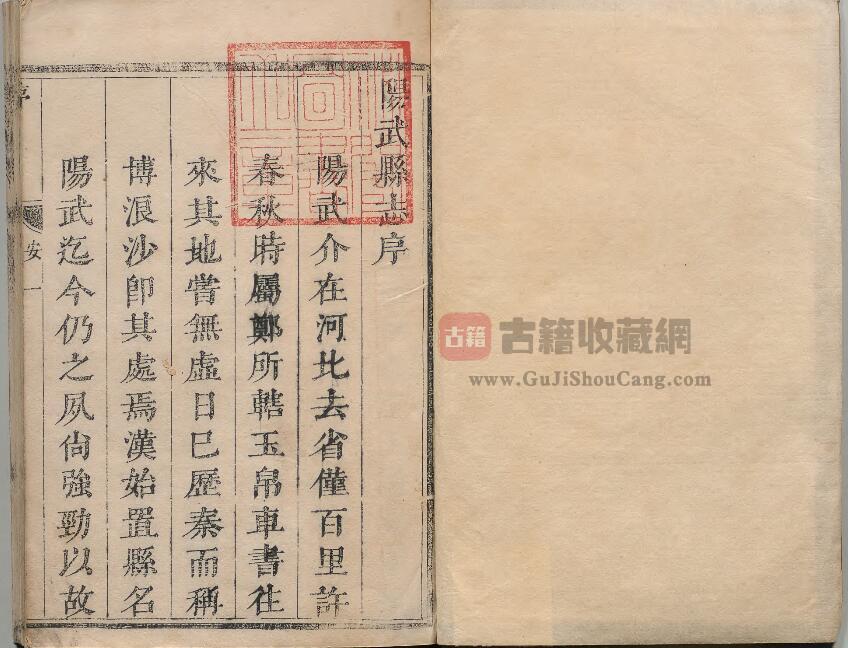 陽武縣志序
陽武介在河北去省僅百里許
春秋時屬鄭所轄玉帛車書往
來其地嘗無虛日已歷秦而稱
博浪沙卽其處焉漢始置縣名
陽武迄今仍之夙尙強勁以故
序
安
一
古籍
古籍收藏網
www.GuJiShouCang.com